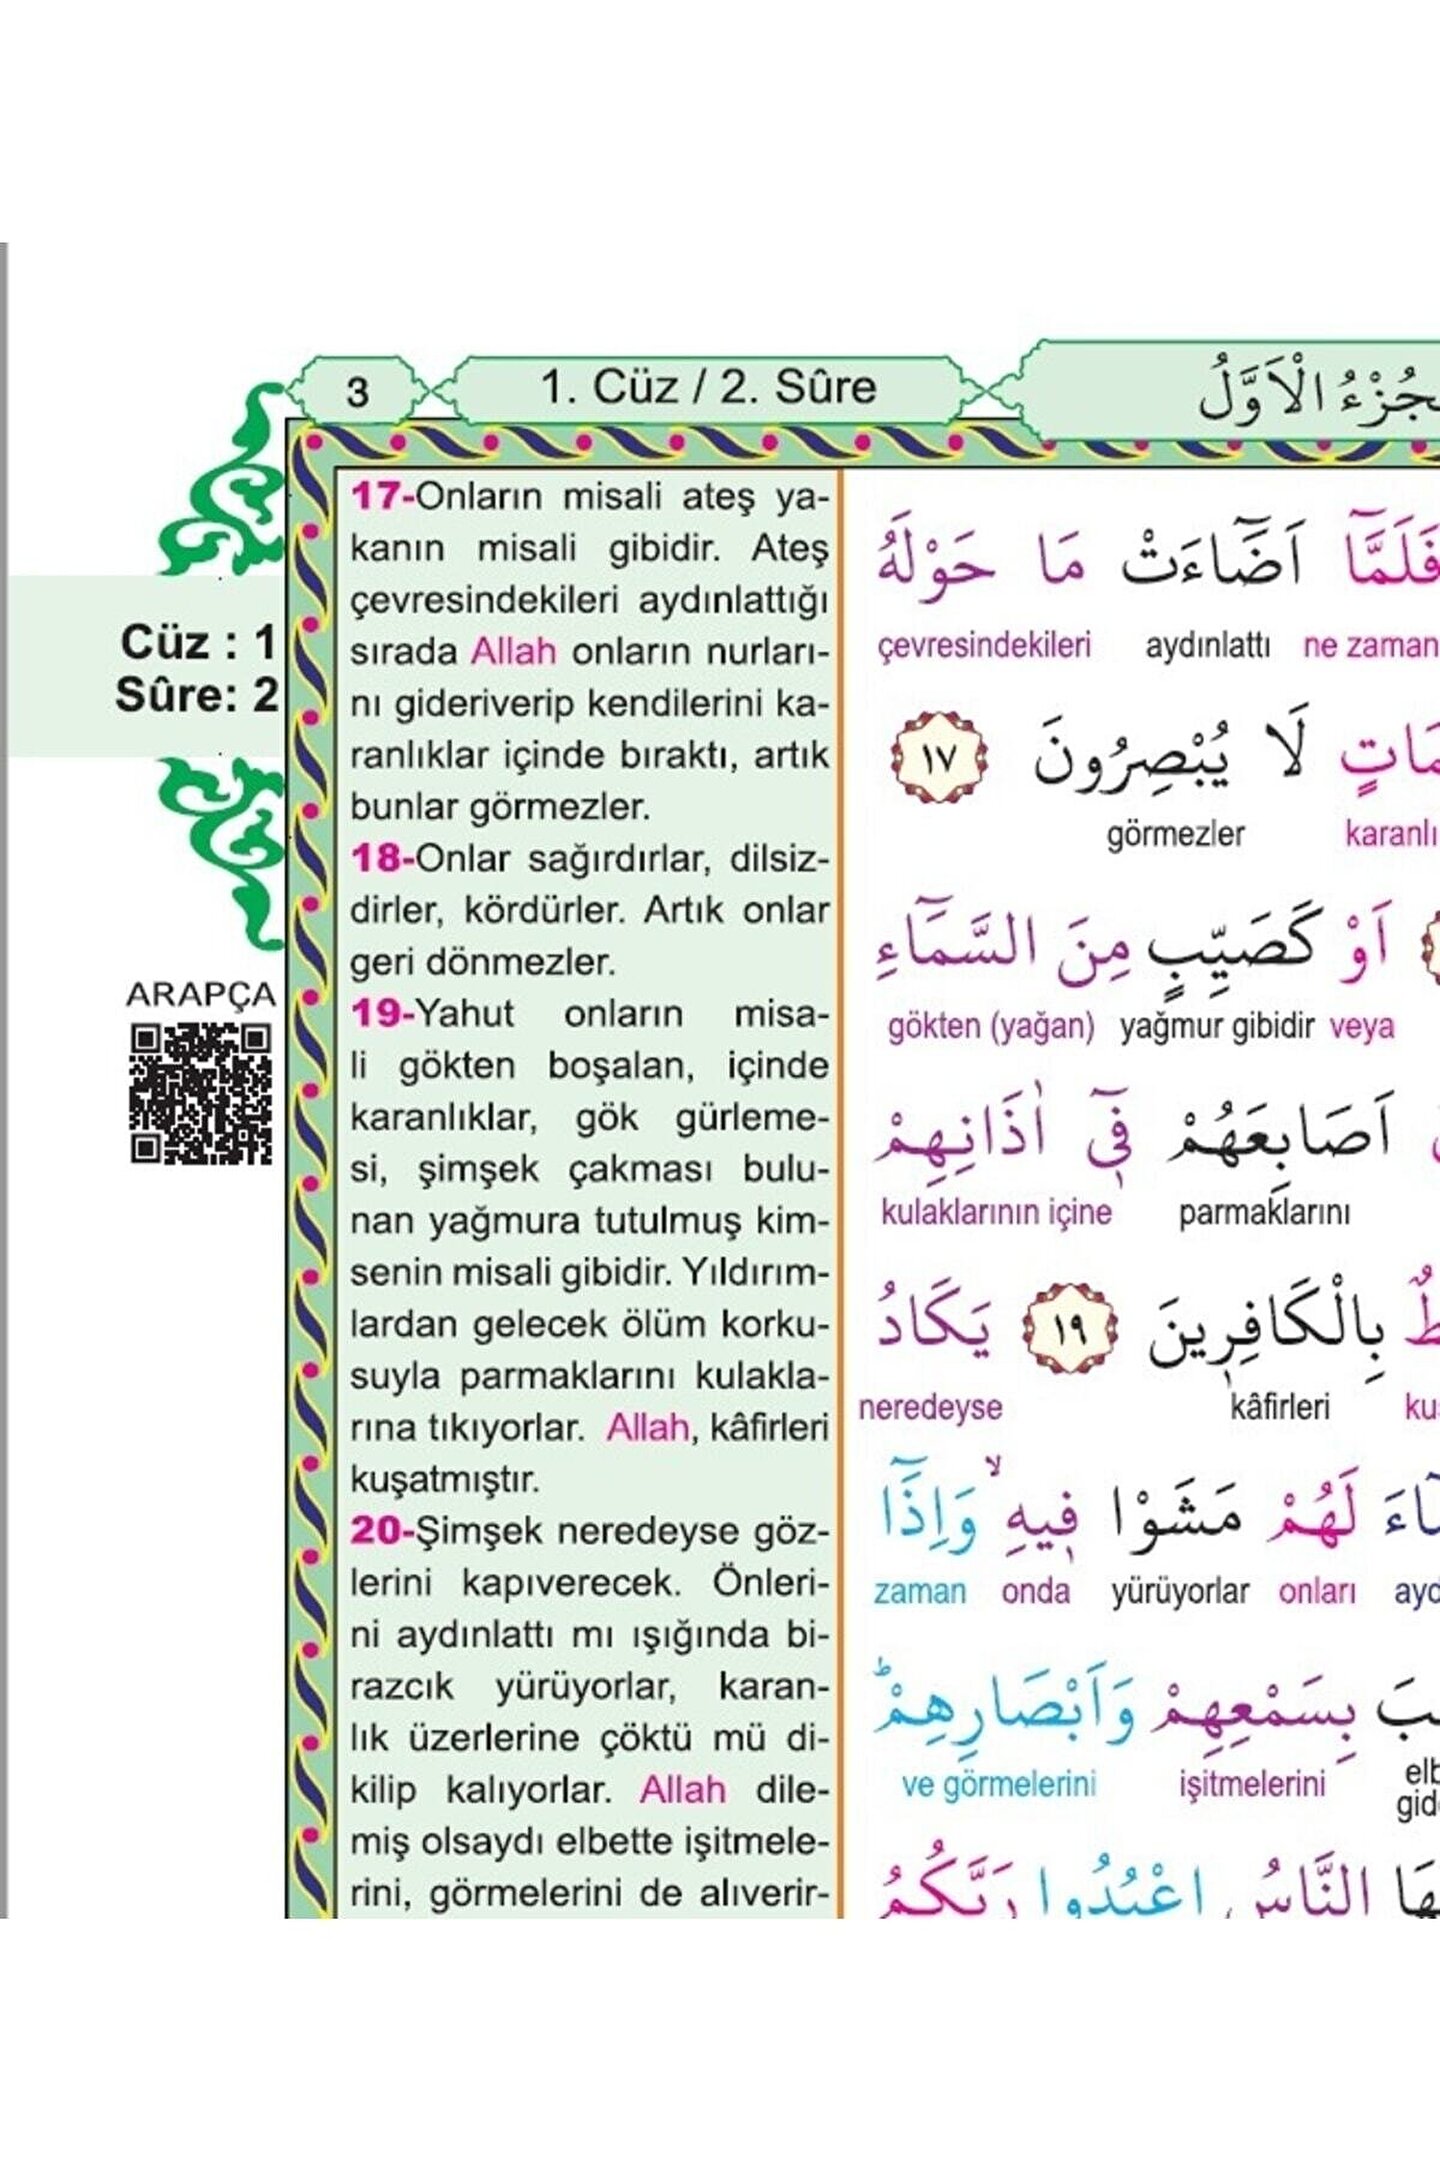 3
1. Cüz / 2. Sûre
الْاَوَّلُ
Cüz : 1
Sûre: 2
ARAPÇA
17-Onların misali ateş ya-
kanın misali gibidir. Ateş
çevresindekileri aydınlattığı
sırada Allah onların nurları-
nı gideriverip kendilerini ka-
ranlıklar içinde bıraktı, artık
bunlar görmezler.
18-Onlar sağırdırlar, dilsiz-
dirler, kördürler. Artık onlar
geri dönmezler.
19-Yahut onların misa-
li gökten boşalan, içinde
karanlıklar, gök gürleme-
si, şimşek çakması bulu-
nan yağmura tutulmuş kim-
senin misali gibidir. Yıldırım-
lardan gelecek ölüm korku-
suyla parmaklarını kulakla-
rına tıkıyorlar. Allah, kâfirleri
kuşatmıştır.
20-Şimşek neredeyse göz-
lerini kapıverecek. Önleri-
ni aydınlattı mı ışığında bi-
razcık yürüyorlar, karan-
lık üzerlerine çöktü mü di-
kilip kalıyorlar. Allah dile-
miş olsaydı elbette işitmele-
rini, görmelerini de alıverir-
فَلَمَّٓا اَضَٓاءَتْ مَا حَوْلَهُ
çevresindekileri aydınlattı ne zaman
لَا يُبْصِرُونَ ١٧
görmezler karanlı
اَوْ كَصَيِّبٍ مِنَ السَّمَٓاءِ
gökten (yağan) yağmur gibidir veya
اَصَابِعَهُمْ فٖٓي اٰذَانِهِمْ
kulaklarının içine parmaklarını
بِالْكَافِرٖينَ ١٩ يَكَادُ
neredeyse kâfirleri kuş
لَهُمْ مَشَوْا فٖيهِۙ وَاِذَٓا
zaman onda yürüyorlar onları ayd
بِسَمْعِهِمْ وَاَبْصَارِهِمْؕ
ve görmelerini işitmelerini elb
gid
النَّاسُ اعْبُدُوا رَبَّكُمُ